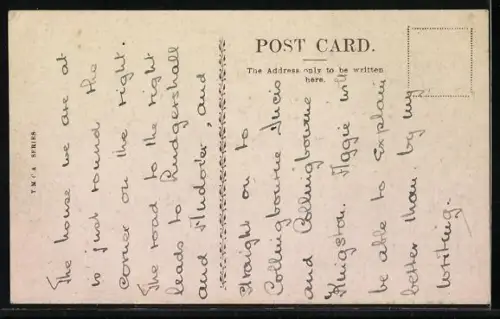 Y.M.C.A. SERIES.
POST CARD.
The Address only to be written
here.
The house we are at
is just round the
corner on the right.
The road to the right
leads to Ludgershall
and Andover, and
straight on to
Collingbourne Ducis
and Collingbourne
Kingston. Aggie will
be able to explain
better than by my
writing.